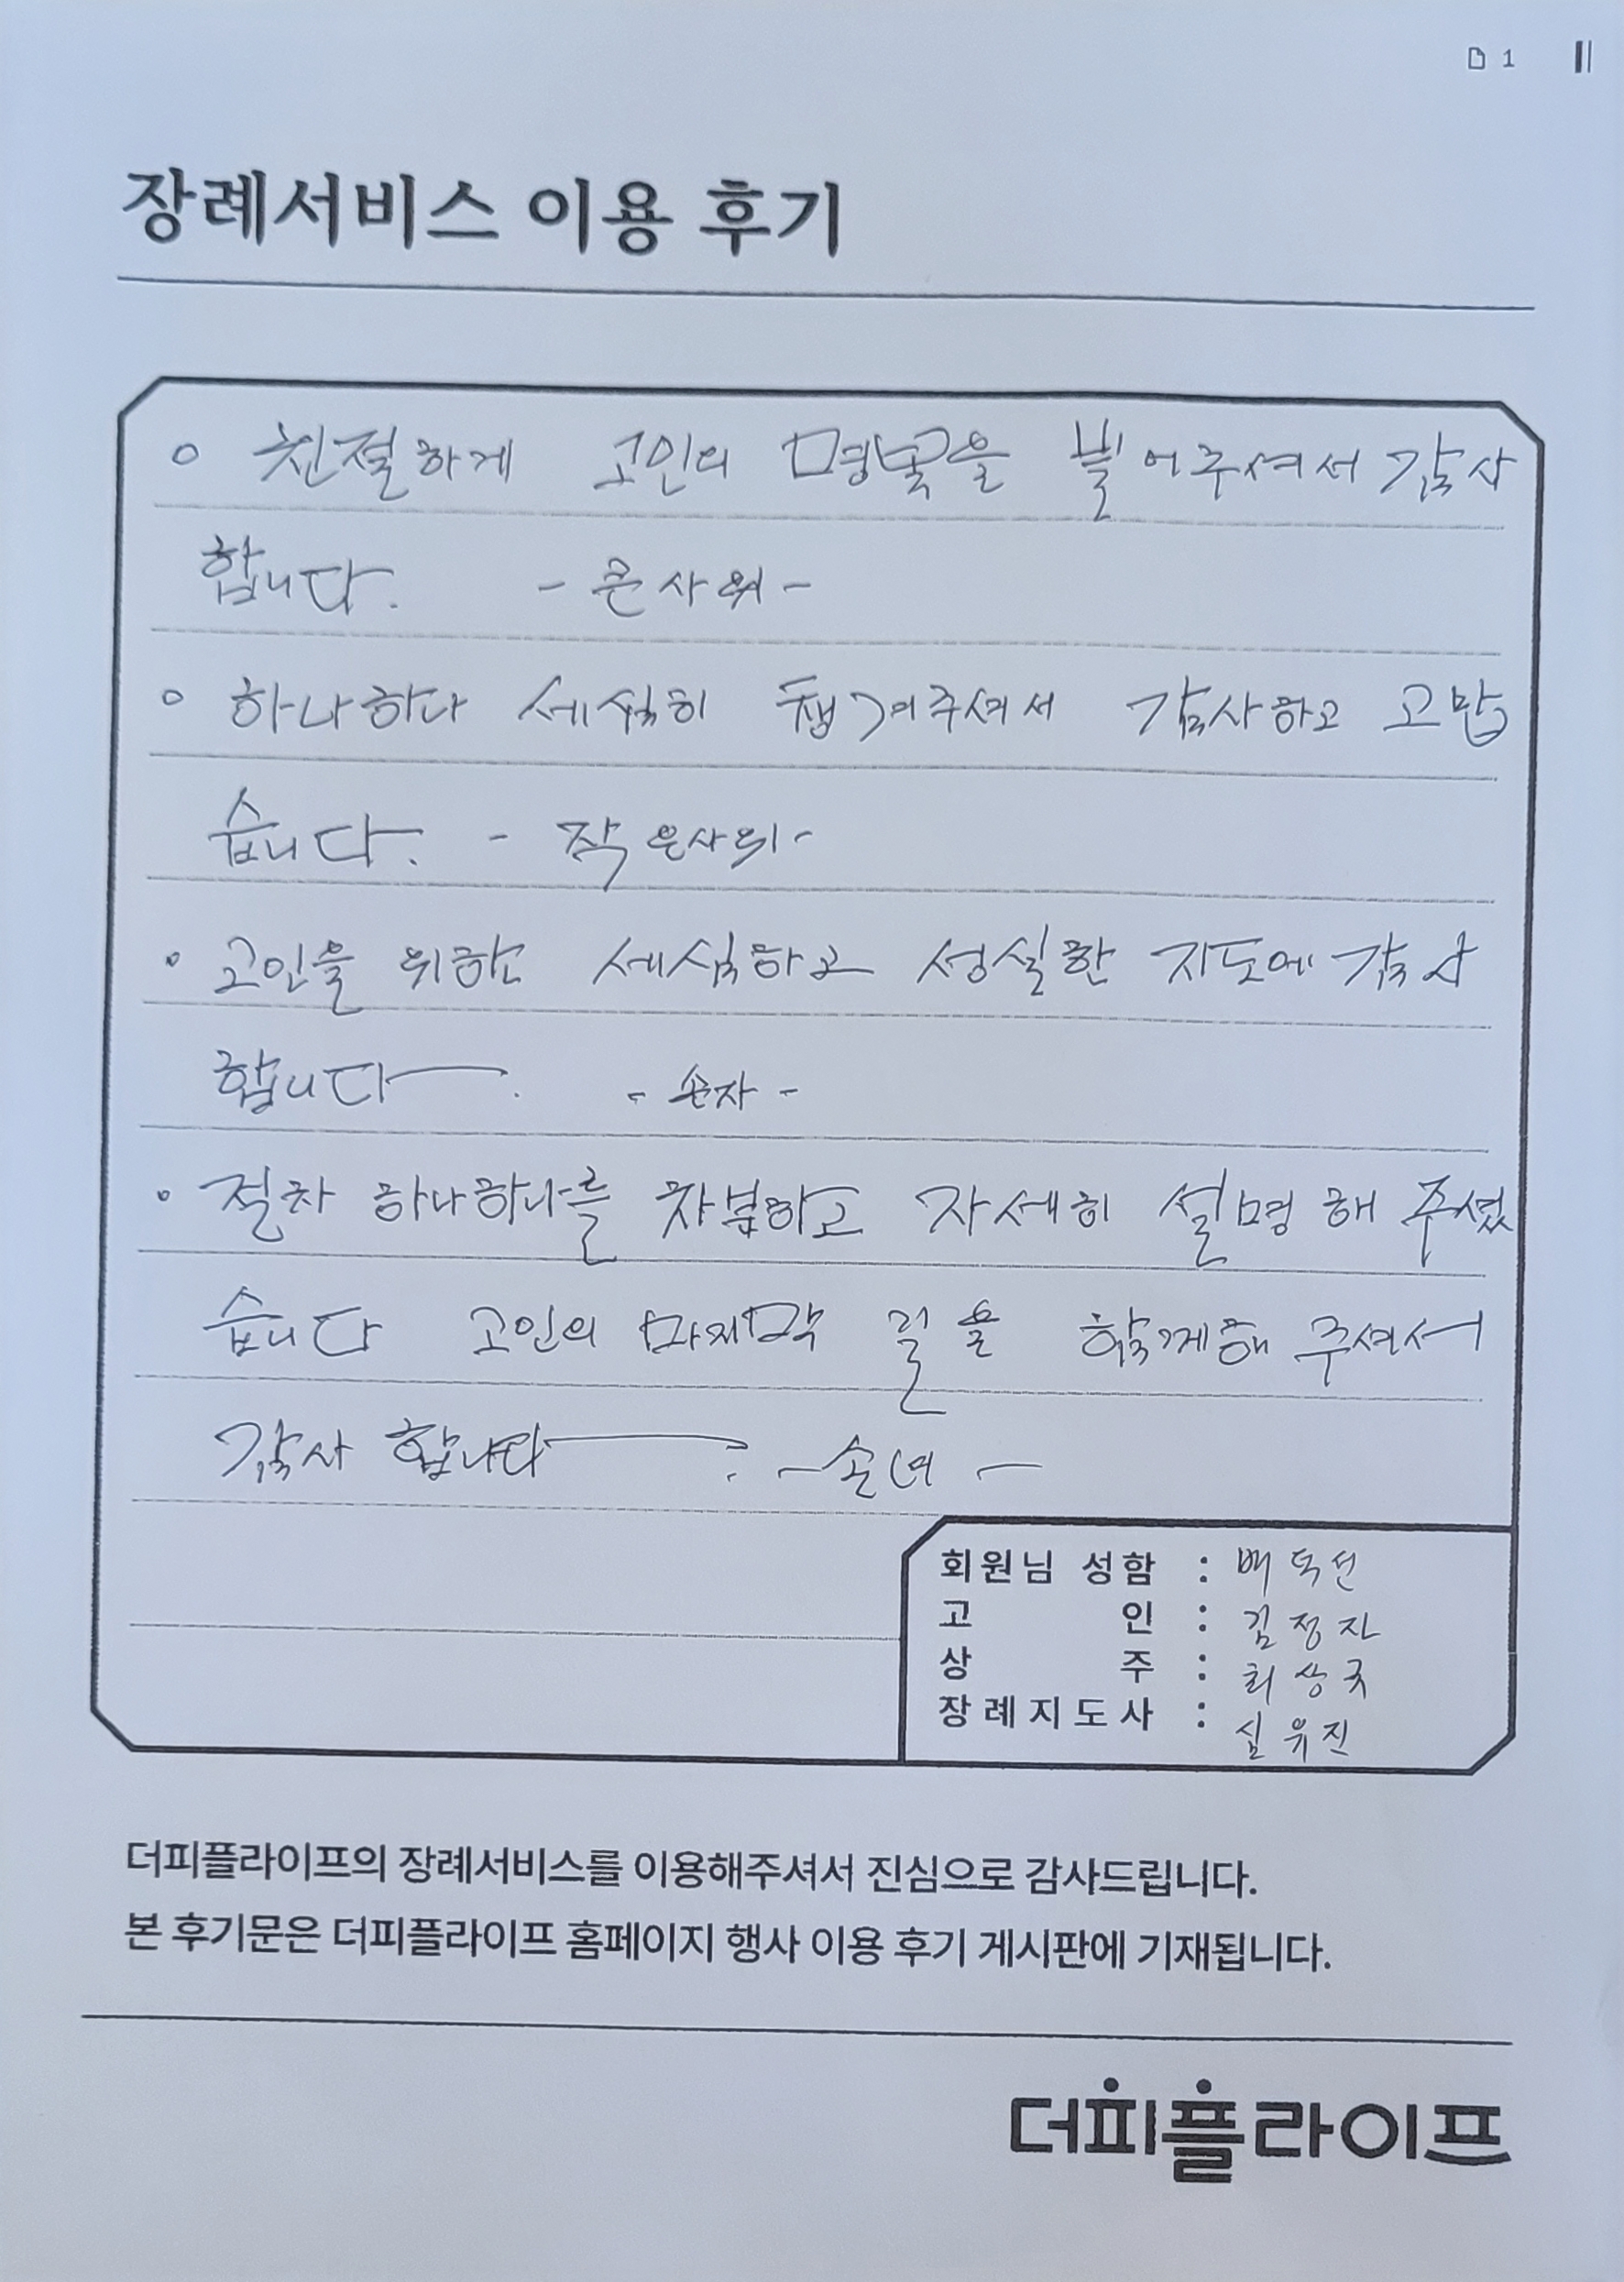 1
장례서비스 이용 후기
○ 친절하게 고인의 명복을 빌어주셔서 감사
합니다. - 큰사위 -
○ 하나하나 세심히 챙겨주셔서 감사하고 고맙
습니다. - 작은사위 -
○ 고인을 위한 세심하고 성실한 지도에 감사
합니다. - 손자 -
○ 절차 하나하나를 차분하고 자세히 설명해 주셨
습니다 고인의 마지막 길을 함께해 주셔서
감사 합니다. - 손녀 -
회원님 성함 : 배덕선
고 인 : 김정자
상 주 : 최상국
장례지도사 : 심유진
더피플라이프의 장례서비스를 이용해주셔서 진심으로 감사드립니다.
본 후기문은 더피플라이프 홈페이지 행사 이용 후기 게시판에 기재됩니다.
더피플라이프